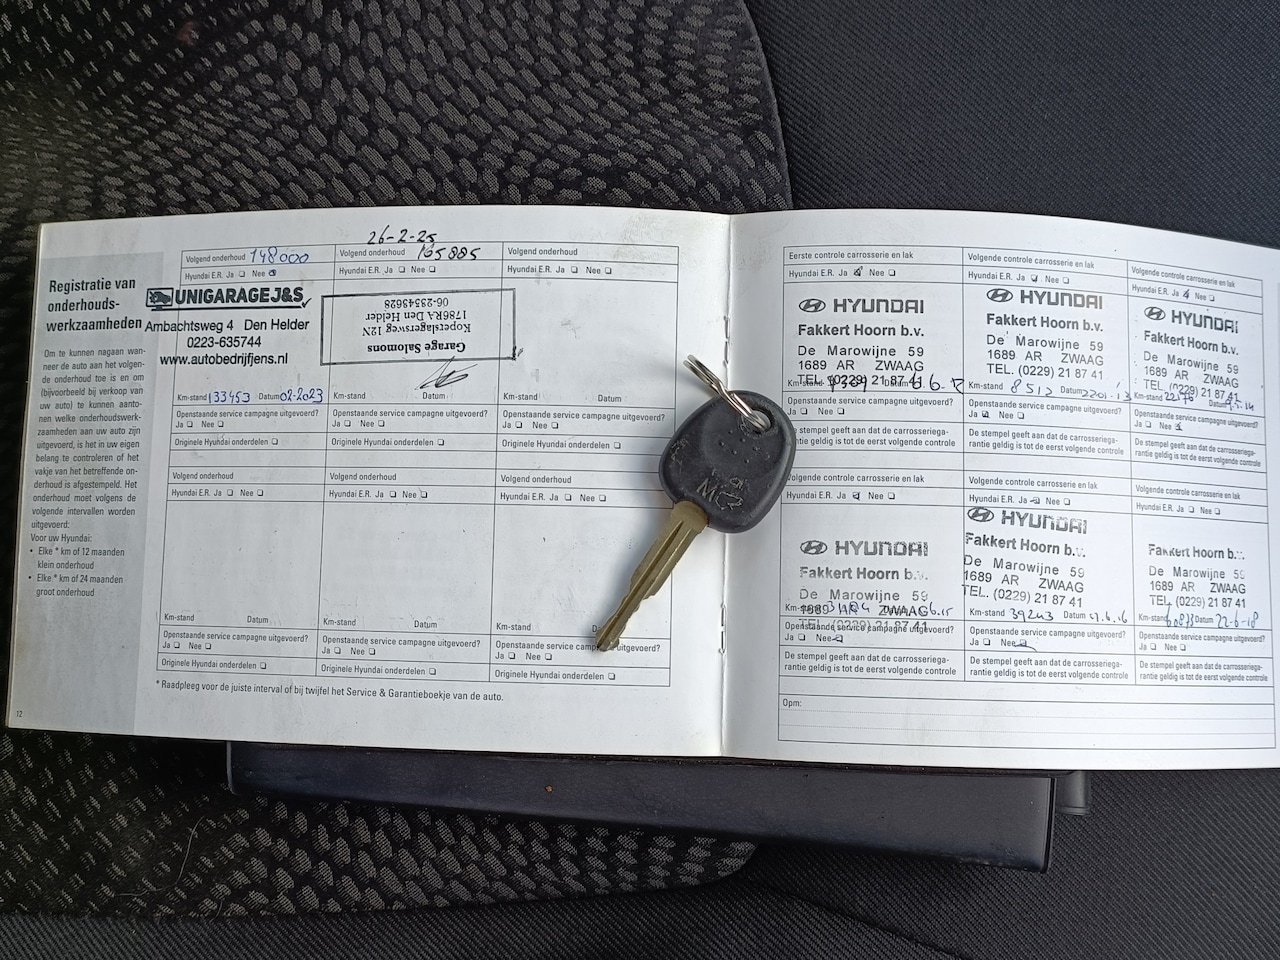 Registratie van
onderhouds-
werkzaamheden
Om te kunnen nagaan wan-
neer de auto aan het volgen-
de onderhoud toe is en om
(bijvoorbeeld bij verkoop van
uw auto) te kunnen aanto-
nen welke onderhoudswerk-
zaamheden aan uw auto zijn
uitgevoerd, is het in uw eigen
belang te controleren of het
vakje van het betreffende on-
derhoud is afgestempeld. Het
onderhoud moet volgens de
volgende intervallen worden
uitgevoerd:
Voor uw Hyundai:
• Elke * km of 12 maanden
klein onderhoud
• Elke * km of 24 maanden
groot onderhoud
12
Volgend onderhoud 148000
Hyundai E.R. Ja Nee
UNIGARAGE J&S
Ambachtsweg 4 Den Helder
0223-635744
www.autobedrijfjens.nl
Km-stand 133453 Datum 02-2023
Openstaande service campagne uitgevoerd?
Ja Nee
Originele Hyundai onderdelen
26-2-25
Volgend onderhoud 165885
Hyundai E.R. Ja Nee
Garage Salomons
Koperslagersweg 12N
1786RA Den Helder
06-23543628
Km-stand Datum
Openstaande service campagne uitgevoerd?
Ja Nee
Originele Hyundai onderdelen
Volgend onderhoud
Hyundai E.R. Ja Nee
Km-stand Datum
Openstaande service campagne uitgevoerd?
Ja Nee
Originele Hyundai onderdelen
Volgend onderhoud
Hyundai E.R. Ja Nee
Km-stand Datum
Openstaande service campagne uitgevoerd?
Ja Nee
Originele Hyundai onderdelen
Volgend onderhoud
Hyundai E.R. Ja Nee
Km-stand Datum
Openstaande service campagne uitgevoerd?
Ja Nee
Originele Hyundai onderdelen
Volgend onderhoud
Hyundai E.R. Ja Nee
Km-stand
Openstaande service uitgevoerd?
Ja Nee
Originele Hyundai onderdelen
* Raadpleeg voor de juiste interval of bij twijfel het Service & Garantieboekje van de auto.
Eerste controle carrosserie en lak
Hyundai E.R. Ja Nee
HYUNDAI
Fakkert Hoorn b.v.
De Marowijne 59
1689 AR ZWAAG
TEL. (0229) 21 87 41
Km-stand
Openstaande service campagne uitgevoerd?
Ja Nee
De stempel geeft aan dat de carrosseriega-
rantie geldig is tot de eerst volgende controle
Volgende controle carrosserie en lak
Hyundai E.R. Ja Nee
HYUNDAI
Fakkert Hoorn b.v.
De Marowijne 59
1689 AR ZWAAG
TEL. (0229) 21 87 41
Km-stand 8512 Datum
Openstaande service campagne uitgevoerd?
Ja Nee
De stempel geeft aan dat de carrosseriega-
rantie geldig is tot de eerst volgende controle
Volgende controle carrosserie en lak
Hyundai E.R. Ja Nee
HYUNDAI
Fakkert Hoorn b.v.
De Marowijne 59
1689 AR ZWAAG
TEL. (0229) 21 87 41
Km-stand Datum
Openstaande service campagne uitgevoerd?
Ja Nee
De stempel geeft aan dat de carrosseriega-
rantie geldig is tot de eerst volgende controle
Volgende controle carrosserie en lak
Hyundai E.R. Ja Nee
HYUNDAI
Fakkert Hoorn b.v.
De Marowijne 59
1689 AR ZWAAG
TEL. (0229) 21 87 41
Km-stand
Openstaande service campagne uitgevoerd?
Ja Nee
De stempel geeft aan dat de carrosseriega-
rantie geldig is tot de eerst volgende controle
Volgende controle carrosserie en lak
Hyundai E.R. Ja Nee
HYUNDAI
Fakkert Hoorn b.v.
De Marowijne 59
1689 AR ZWAAG
TEL. (0229) 21 87 41
Km-stand 39243 Datum
Openstaande service campagne uitgevoerd?
Ja Nee
De stempel geeft aan dat de carrosseriega-
rantie geldig is tot de eerst volgende controle
Volgende controle carrosserie en lak
Hyundai E.R. Ja Nee
Fakkert Hoorn b.v.
De Marowijne 59
1689 AR ZWAAG
TEL. (0229) 21 87 41
Km-stand Datum 22-6-18
Openstaande service campagne uitgevoerd?
Ja Nee
De stempel geeft aan dat de carrosseriega-
rantie geldig is tot de eerst volgende controle
Opm: